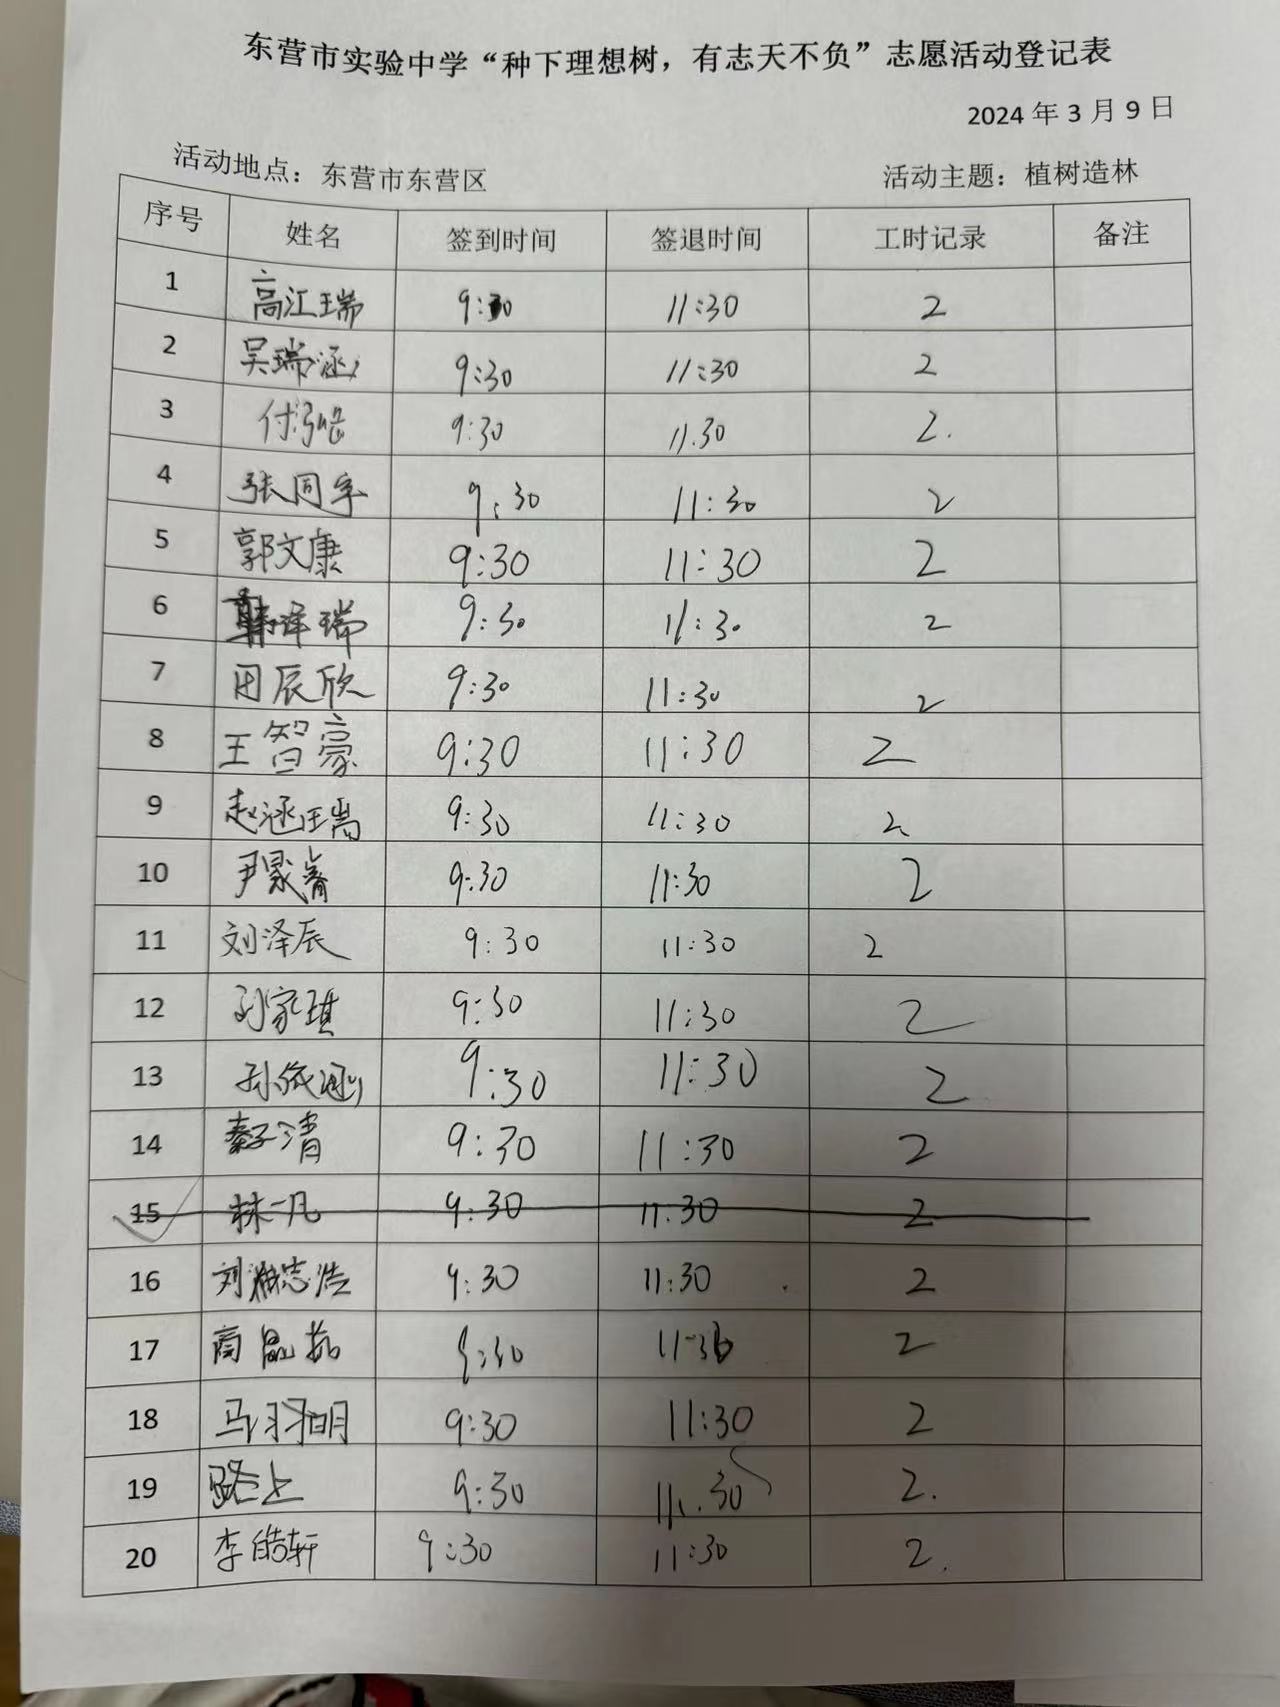 东营市实验中学“种下理想树，有志天不负”志愿活动登记表
2024 年 3 月 9 日
活动地点：东营市东营区 活动主题：植树造林
序号 姓名 签到时间 签退时间 工时记录 备注
1 高江瑞 9:30 11:30 2
2 吴瑞涵 9:30 11:30 2
3 付泓皓 9:30 11.30 2.
4 张同宇 9:30 11:30 2
5 郭文康 9:30 11:30 2
6 韩泽瑞 9:30 11:30 2
7 田辰欣 9:30 11:30 2
8 王智豪 9:30 11:30 2
9 赵涵瑞 9:30 11:30 2
10 尹晟睿 9:30 11:30 2
11 刘泽辰 9:30 11:30 2
12 孙家琪 9:30 11:30 2
13 孙依涵 9:30 11:30 2
14 秦子清 9:30 11:30 2
15 林一凡 9:30 11:30 2
16 刘志浩 9:30 11:30 2
17 9:30 11:30 2
18 马羽明 9:30 11:30 2
19 路上 9:30 11:30 2.
20 李皓轩 9:30 11:30 2.